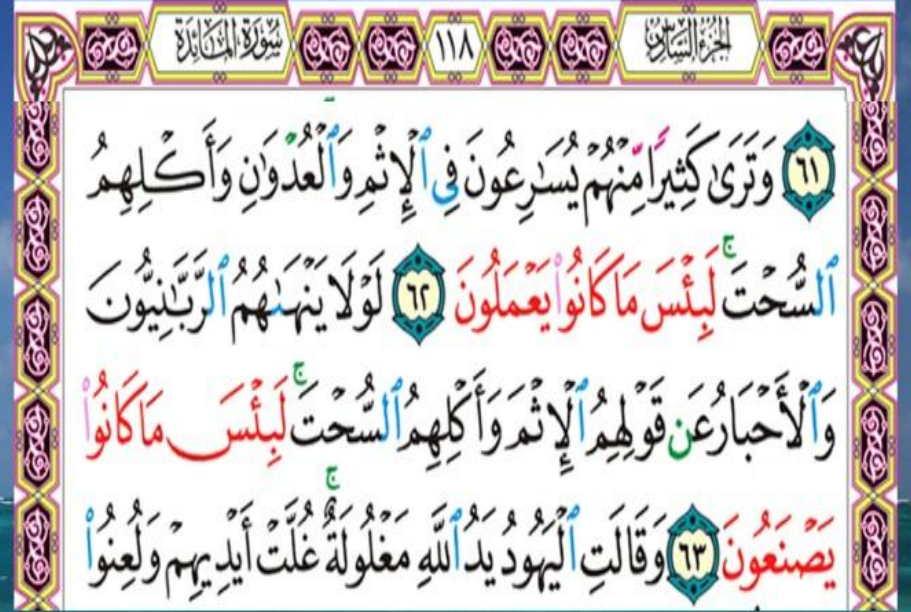 سُورَةُ المَائدَة ١١٨ الجُزءُ السَّادِسُ
٦١ وَتَرَىٰ كَثِيرًا مِّنْهُمْ يُسَٰرِعُونَ فِي ٱلْإِثْمِ وَٱلْعُدْوَٰنِ وَأَكْلِهِمُ
ٱلسُّحْتَ ۚ لَبِئْسَ مَا كَانُوا۟ يَعْمَلُونَ ٦٢ لَوْلَا يَنْهَىٰهُمُ ٱلرَّبَّٰنِيُّونَ
وَٱلْأَحْبَارُ عَن قَوْلِهِمُ ٱلْإِثْمَ وَأَكْلِهِمُ ٱلسُّحْتَ ۚ لَبِئْسَ مَا كَانُوا۟
يَصْنَعُونَ ٦٣ وَقَالَتِ ٱلْيَهُودُ يَدُ ٱللَّهِ مَغْلُولَةٌ ۚ غُلَّتْ أَيْدِيهِمْ وَلُعِنُوا۟